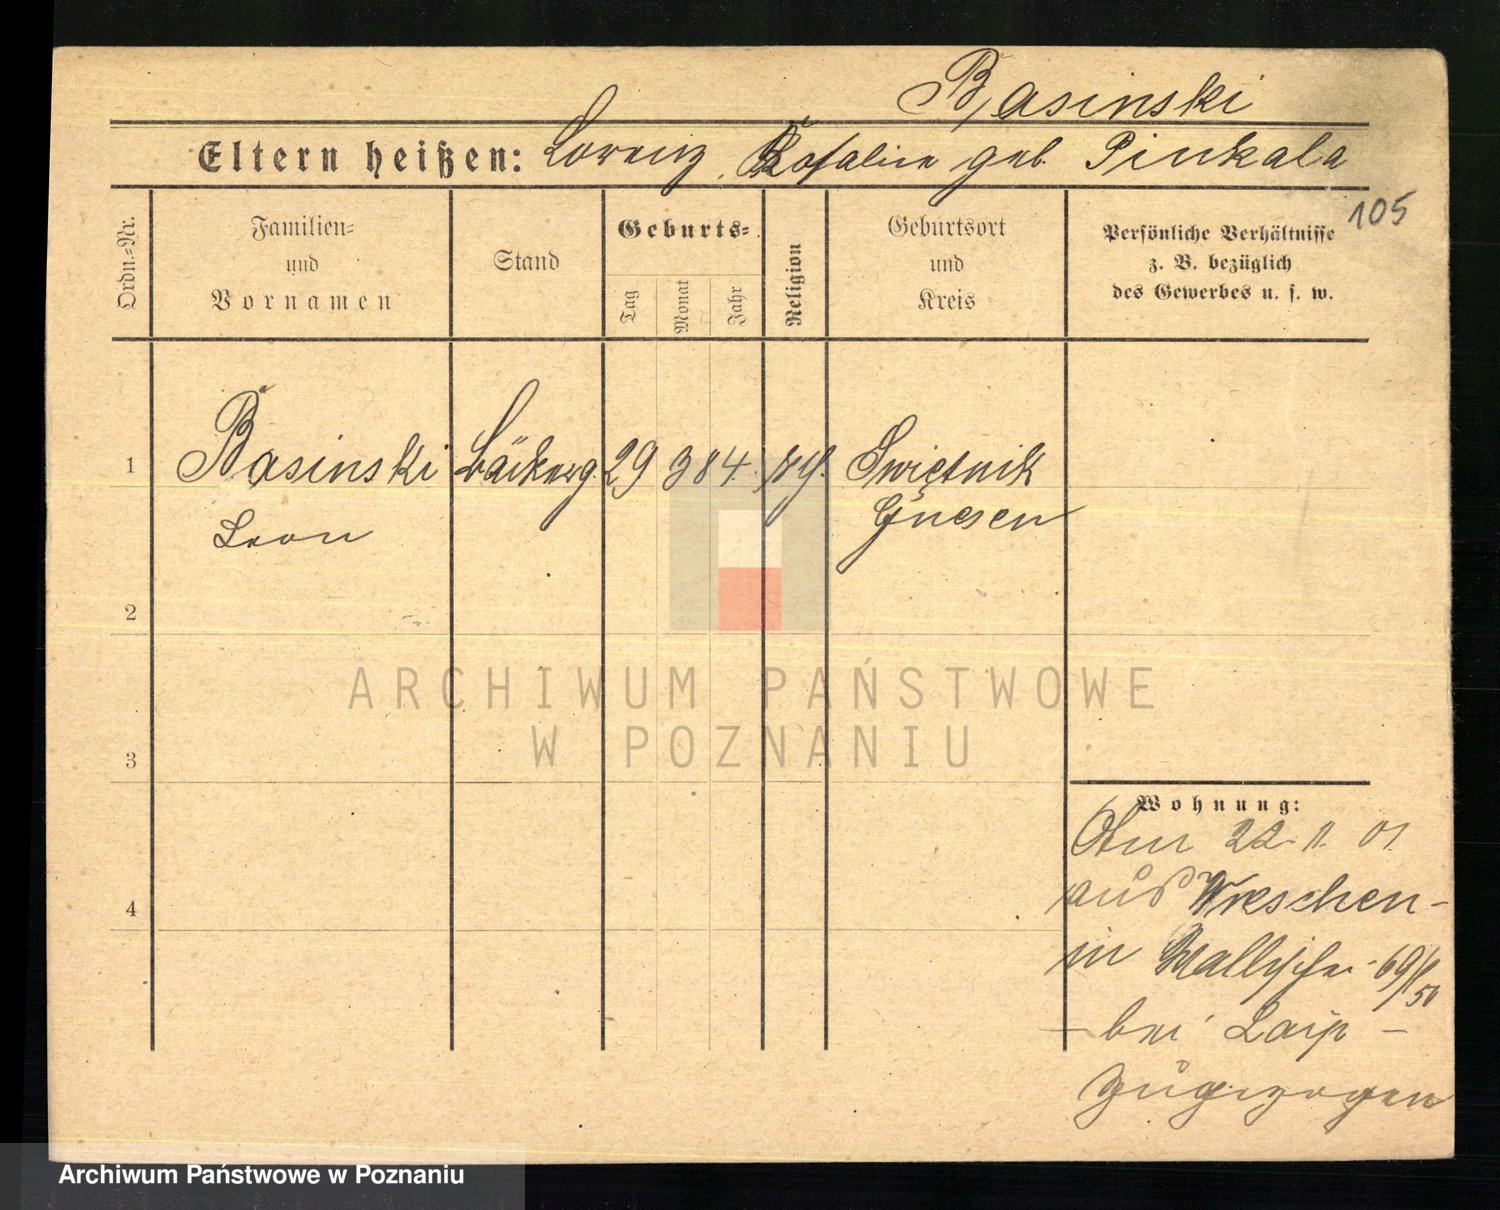 Basinski
Eltern heißen: Lorenz, Rosalie geb. Pinkala
105
Ordn.-Nr.
Familien-
und
Vornamen
Stand
Geburts-
Tag
Monat
Jahr
Religion
Geburtsort
und
Kreis
Persönliche Verhältnisse
z. B. bezüglich
des Gewerbes u. s. w.
1
Basinski Bäckerg. 29 3 84 Swiętnik
Leon
Gnesen
2
3
4
ARCHIWUM PAŃSTWOWE
W POZNANIU
Wohnung:
Am 22. 11. 01.
aus Wreschen -
in Wallischei 69/150
- bei Laip -
zugezogen
Archiwum Państwowe w Poznaniu